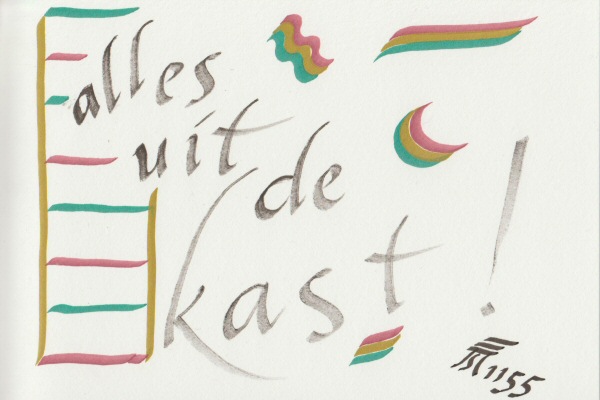 alles
uit de
kast!
1155